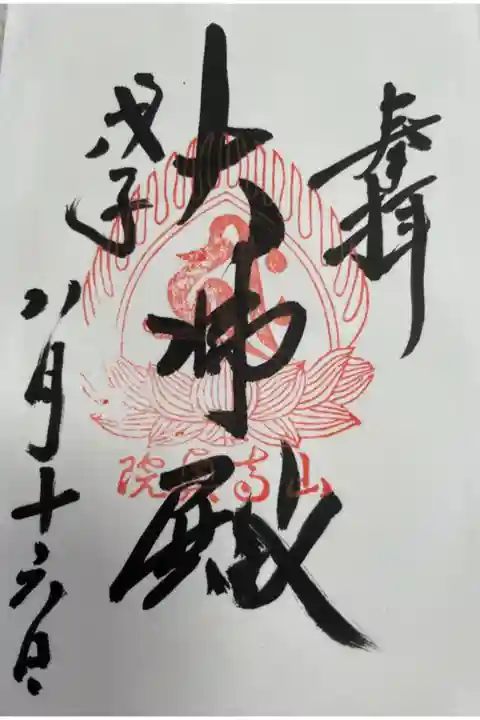 奉拝
大佛殿
戊子
八月十六日
山高院